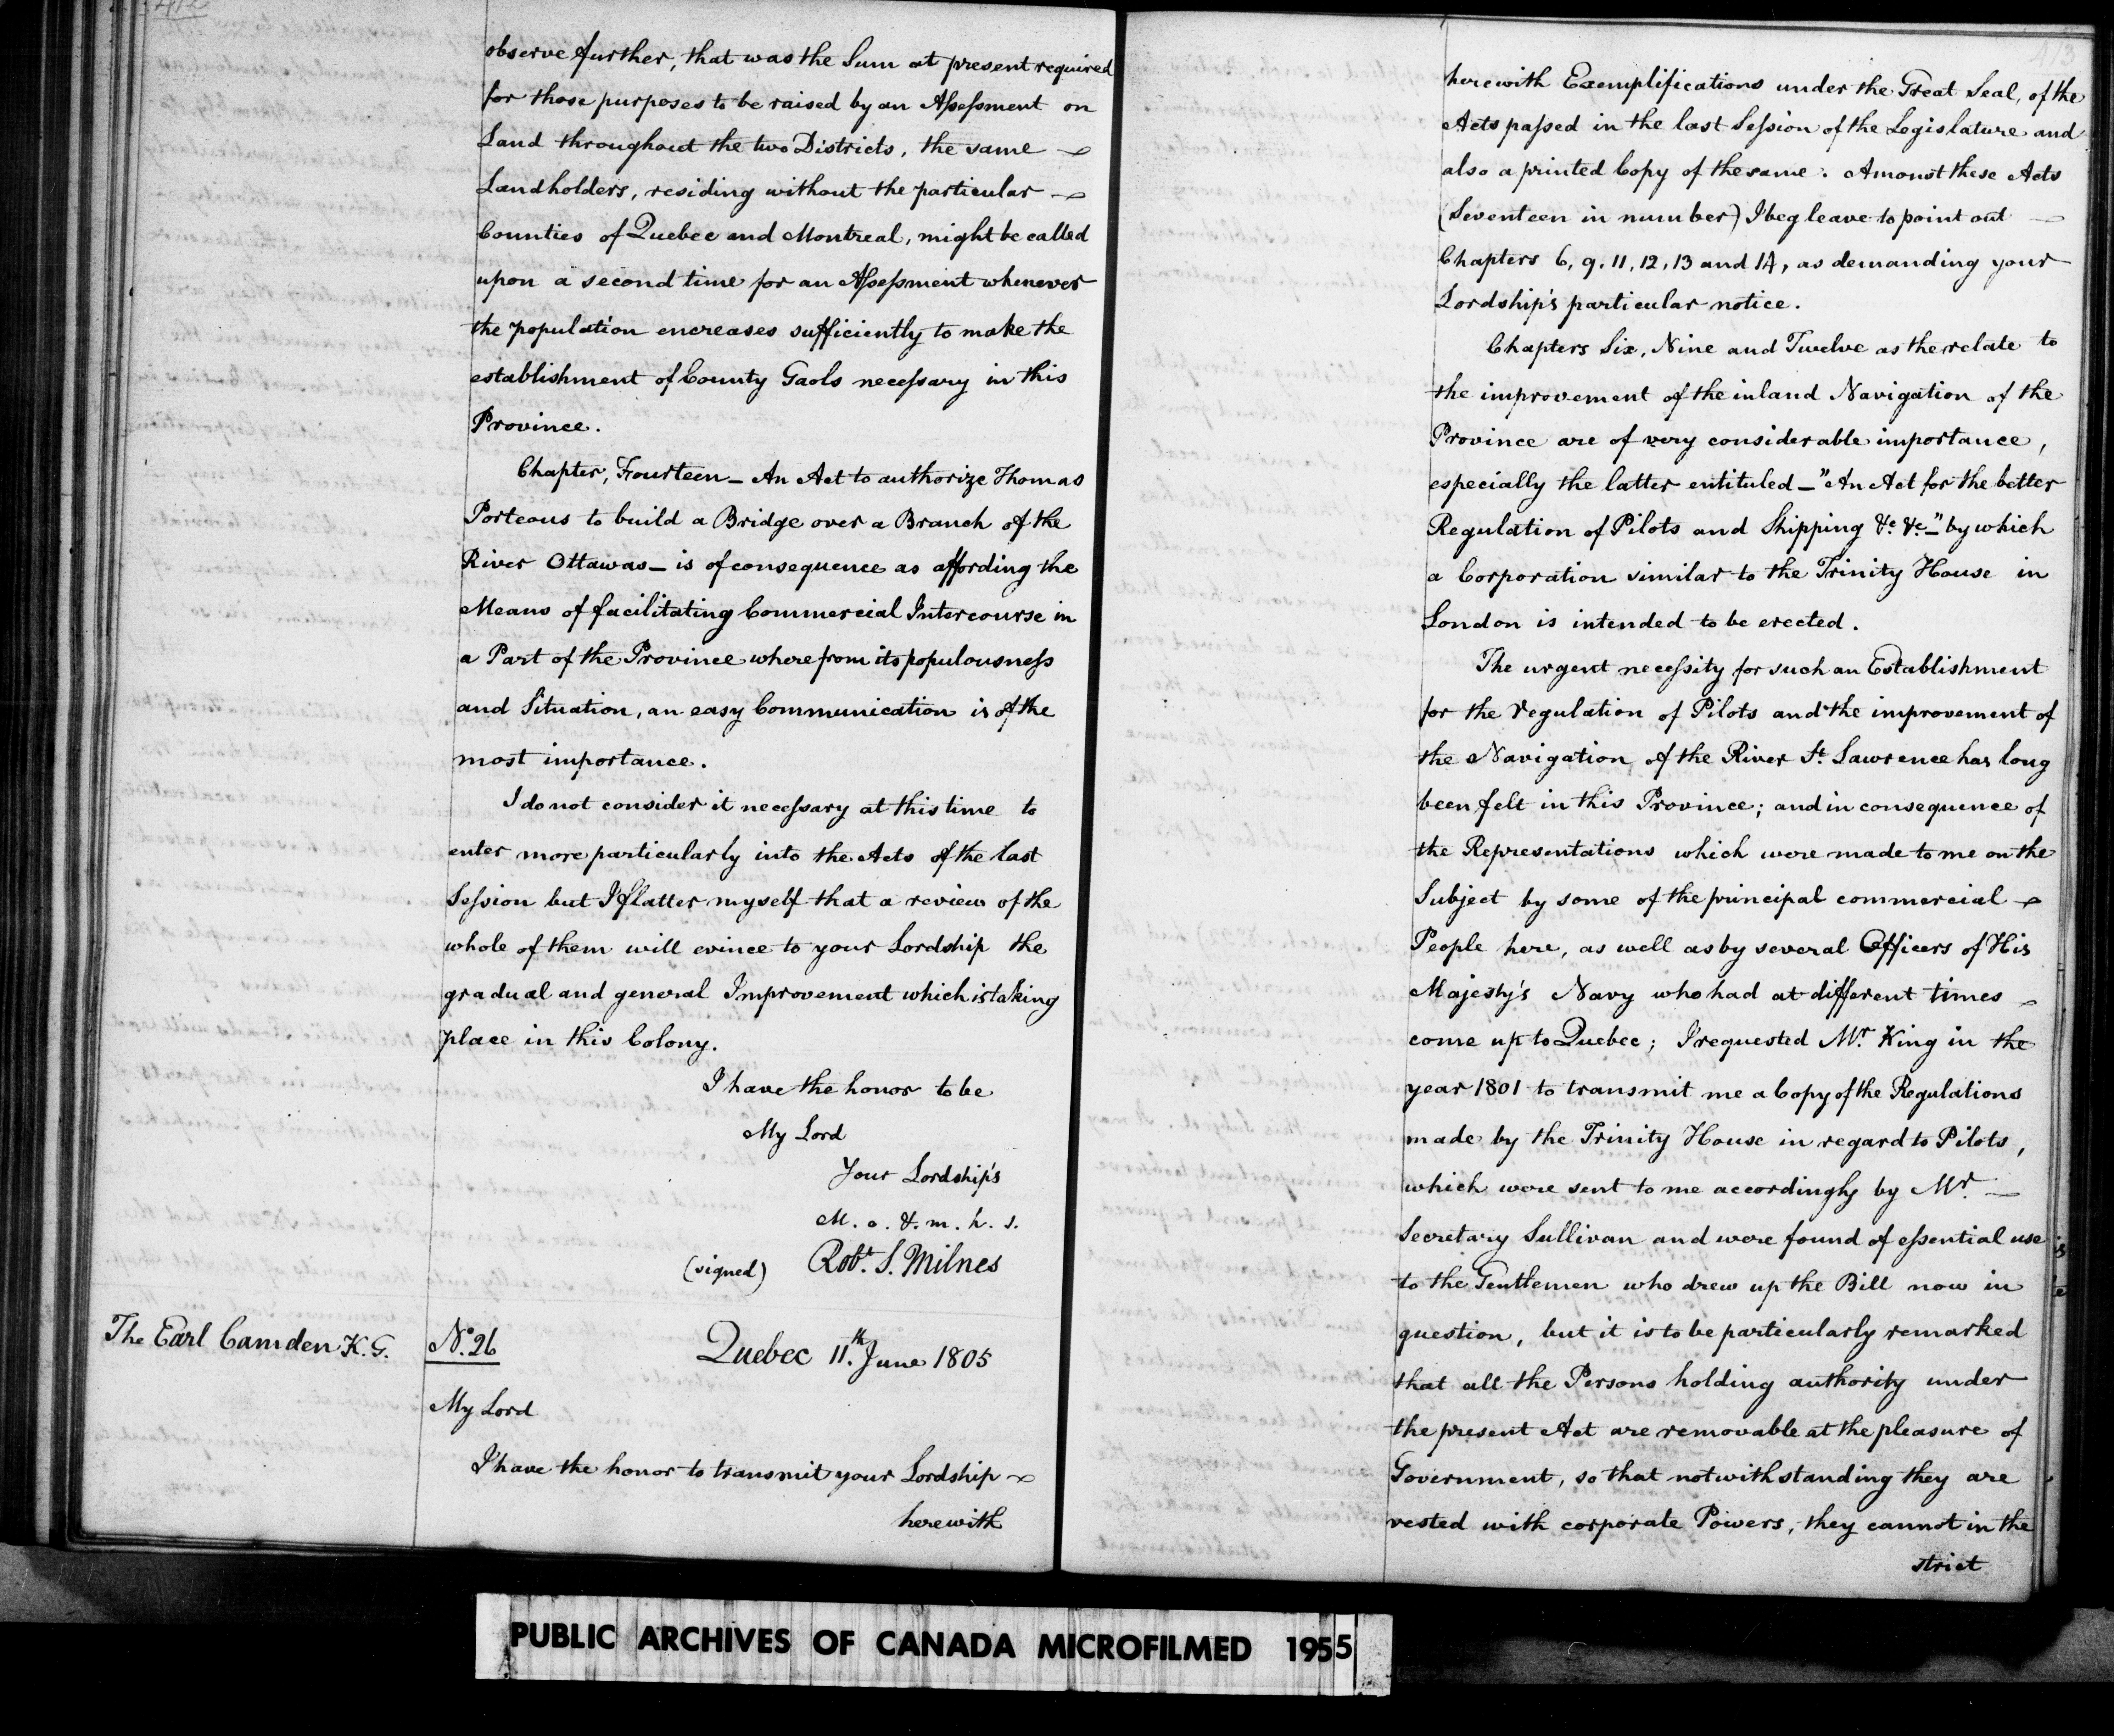 412
observe further, that was the Sum at present required
for those purposes to be raised by an Assessment on
Land throughout the two Districts, the same
Landholders, residing without the particular
Counties of Quebec and Montreal, might be called
upon a second time for an Assessment whenever
the population encreases sufficiently to make the
establishment of County Gaols necessary in this
Province.
Chapter, Fourteen_ An Act to authorize Thomas
Porteous to build a Bridge over a Branch of the
River Ottawas_ is of consequence as affording the
Means of facilitating Commercial Intercourse in
a Part of the Province where from its populousness
and Situation, an easy Communication is of the
most importance.
I do not consider it necessary at this time to
enter more particularly into the Acts of the last
Session but I flatter myself that a review of the
whole of them will evince to your Lordship the
gradual and general Improvement which is taking
place in this Colony.
I have the honor to be
My Lord
Your Lordship's
M. o. & m. h. s.
(signed) Robt. S. Milnes
The Earl Camden K. G.
No. 26 Quebec 11.th June 1805
My Lord
I have the honor to transmit your Lordship
herewith
413
herewith Exemplifications under the Great Seal, of the
Acts passed in the last Session of the Legislature and
also a printed Copy of the same. Amonst these Acts
(Seventeen in number) I beg leave to point out
Chapters 6, 9. 11, 12, 13 and 14, as demanding your
Lordship's particular notice.
Chapters Six, Nine and Twelve as the relate to
the improvement of the inland Navigation of the
Province are of very considerable importance,
especially the latter entituled_ "An Act for the better
Regulation of Pilots and Shipping &c. &c._" by which
a Corporation similar to the Trinity House in
London is intended to be erected.
The urgent necessity for such an Establishment
for the regulation of Pilots and the improvement of
the Navigation of the River St. Lawrence has long
been felt in this Province; and in consequence of
the Representations which were made to me on the
Subject by some of the principal commercial
People here, as well as by several Officers of His
Majesty's Navy who had at different times
come up to Quebec; I requested Mr. King in the
year 1801 to transmit me a Copy of the Regulations
made by the Trinity House in regard to Pilots,
which were sent to me accordingly by Mr.
Secretary Sullivan and were found of essential use
to the Gentlemen who drew up the Bill now in
question, but it is to be particularly remarked
that all the Persons holding authority under
the present Act are removable at the pleasure of
Government, so that notwithstanding they are
vested with corporate Powers, they cannot in the
strict
PUBLIC ARCHIVES OF CANADA MICROFILMED 1955